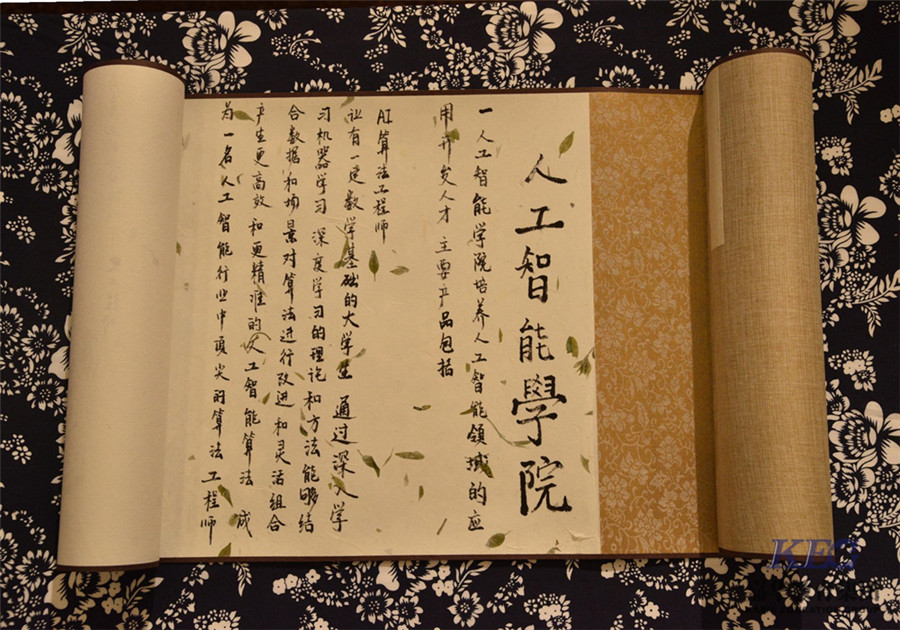 人工智能學院
一 人工智能学院培养人工智能领域的应
用开发人才 主要产品包括
AI算法工程师
让有一定数学基础的大学生 通过深入学
习机器学习 深度学习的理论和方法能够结
合数据和场景对算法进行改进和灵活组合
产生更高效和更精准的人工智能算法 成
为一名人工智能行业中顶尖的算法工程师
KES